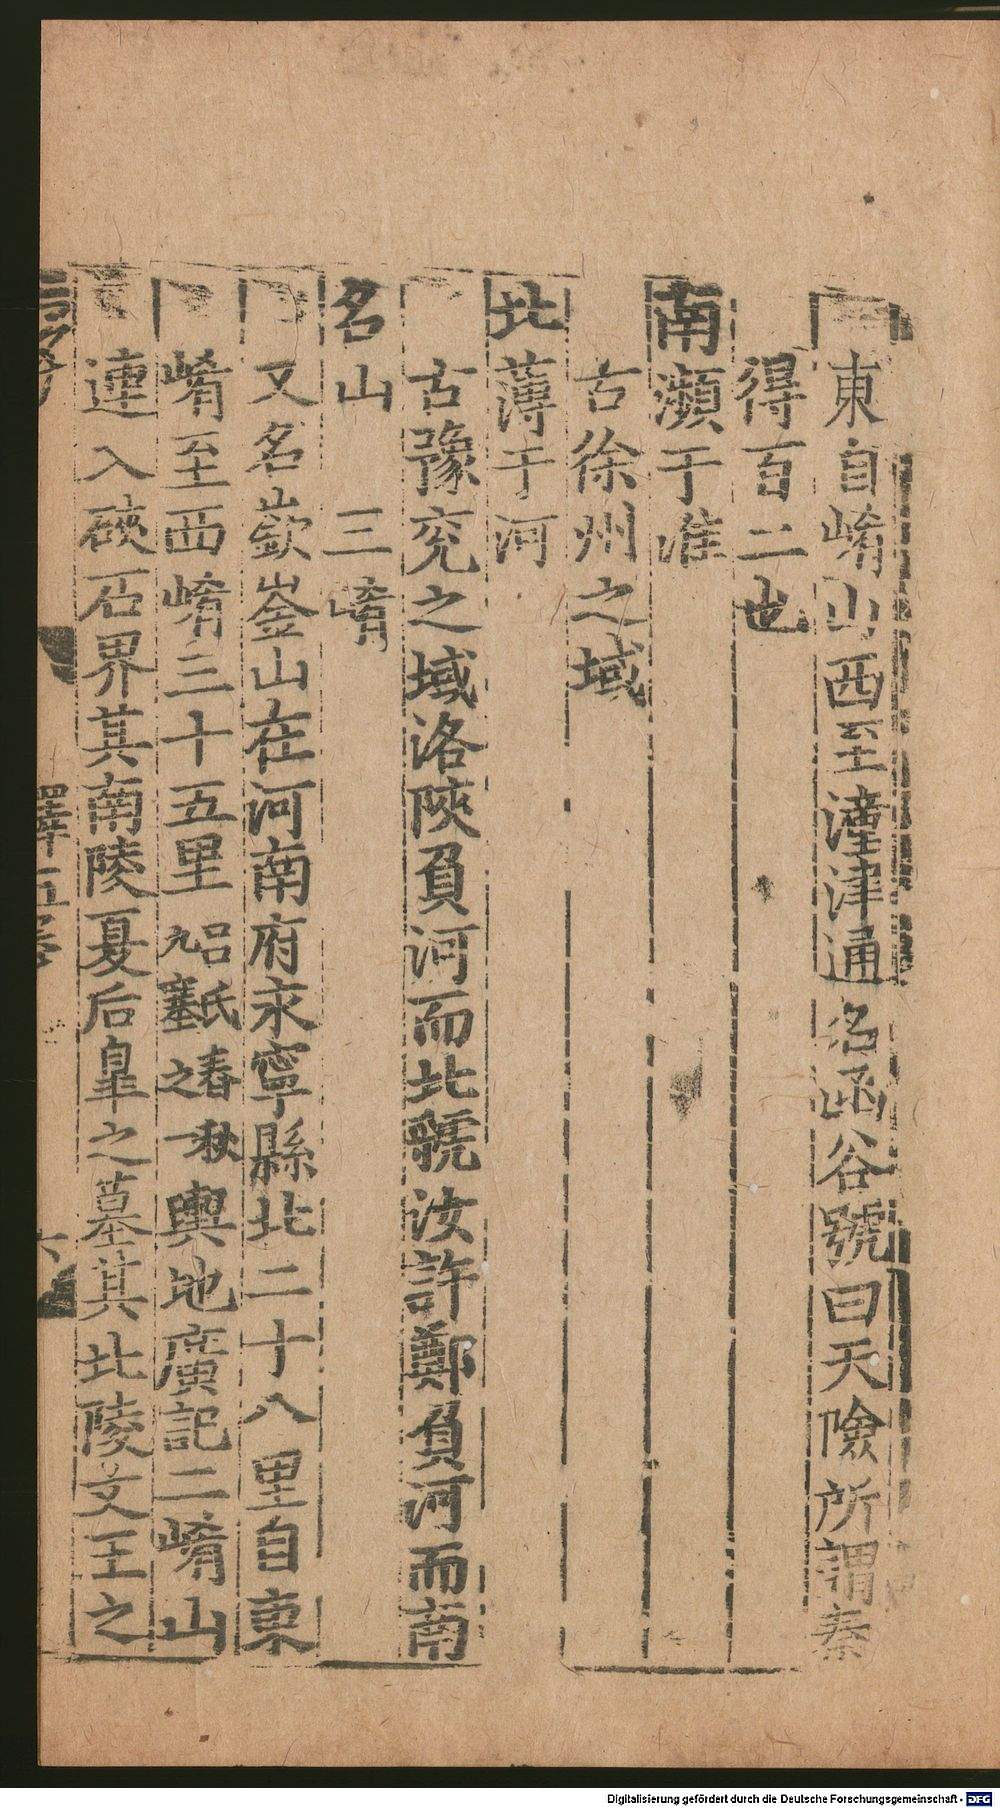 東自崤山西至潼津通名函谷號曰天險所謂秦
得百二也
南瀕于淮
古徐州之域
北薄于河
古豫兖之域洛陝負河而北虢汝許鄭負河而南
名山 三崤
又名嶔崟山在河南府永寧縣北二十八里自東
崤至西崤三十五里呂氏春秋九塞之一輿地廣記二崤山
連入硤石界其南陵夏后皐之墓其北陵文王之
譯五
六
Digitalisierung gefördert durch die Deutsche Forschungsgemeinschaft - DFG